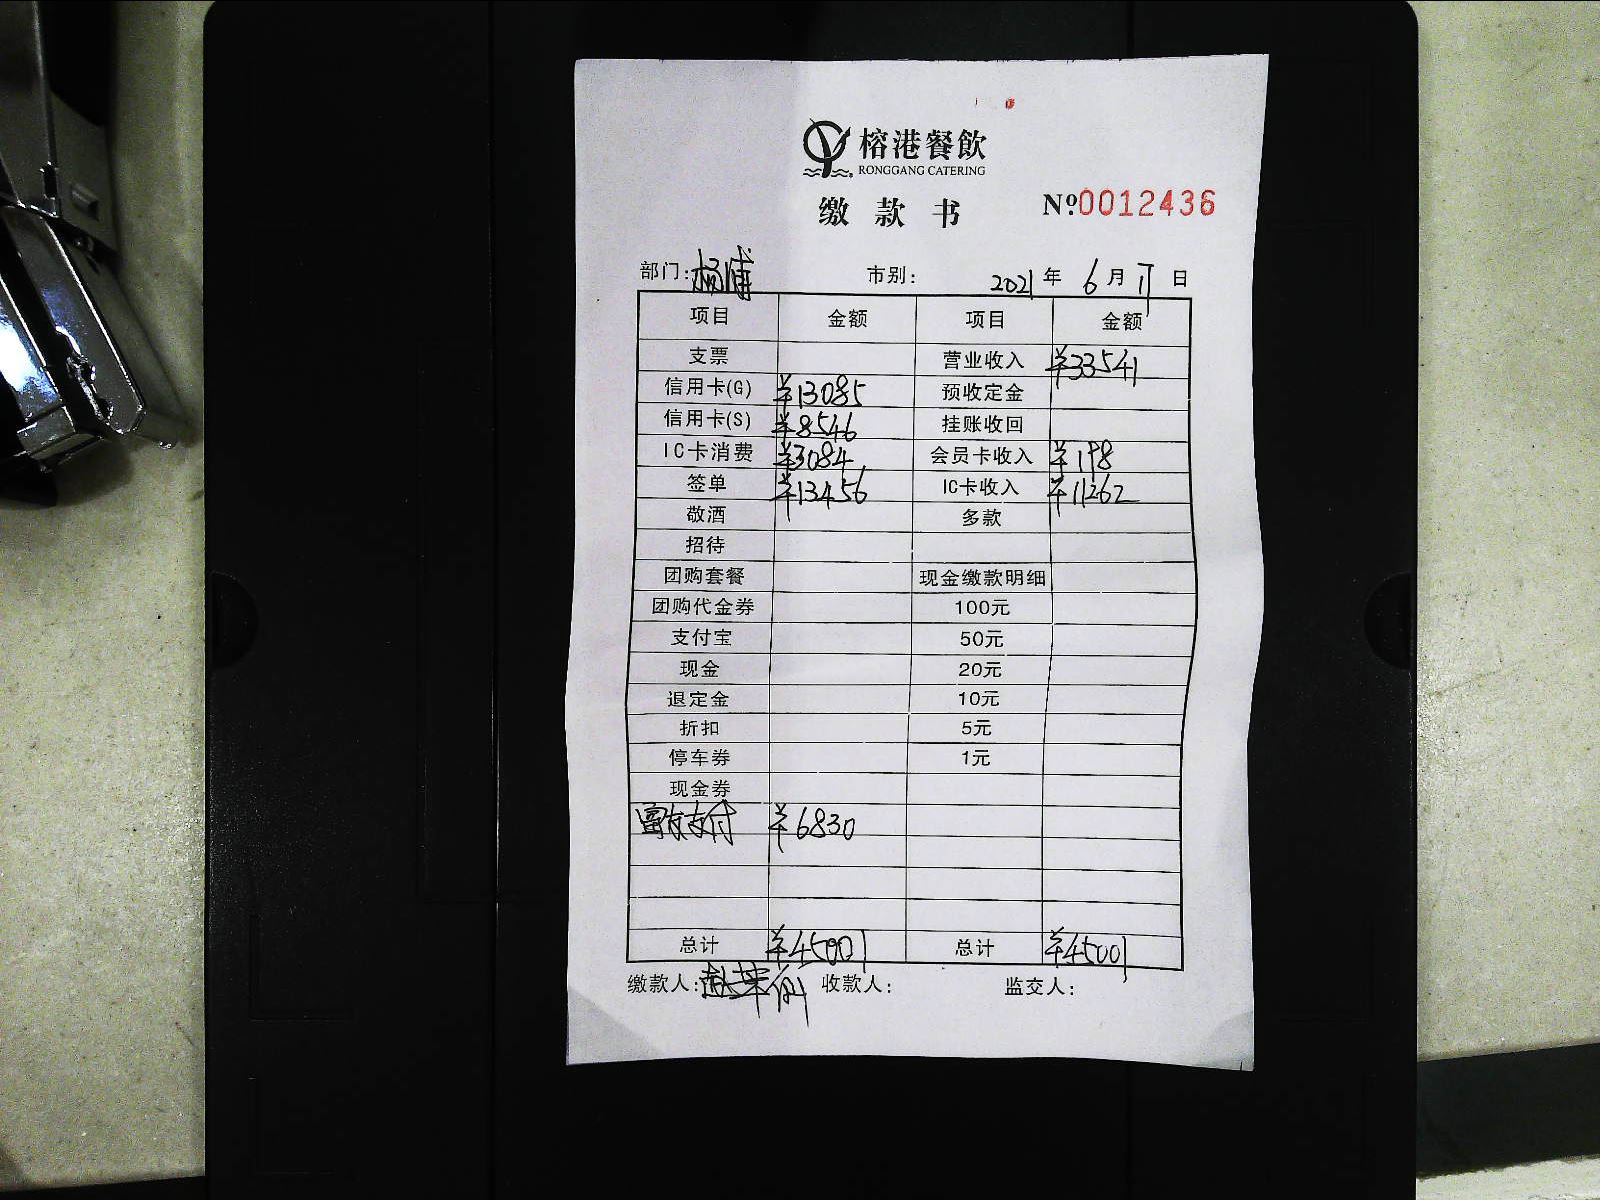 榕港餐飲
RONGGANG CATERING
缴款书
№0012436
部门:杨浦 市别: 2021年6月11日
项目 金额 项目 金额
支票 营业收入 ¥33541
信用卡(G) ¥13085 预收定金
信用卡(S) ¥8546 挂账收回
IC卡消费 ¥3084 会员卡收入 ¥198
签单 ¥13456 IC卡收入 ¥11262
敬酒 多款
招待
团购套餐 现金缴款明细
团购代金券 100元
支付宝 50元
现金 20元
退定金 10元
折扣 5元
停车券 1元
现金券
富友支付 ¥6830
总计 ¥45001 总计 ¥45001
缴款人: 收款人: 监交人: